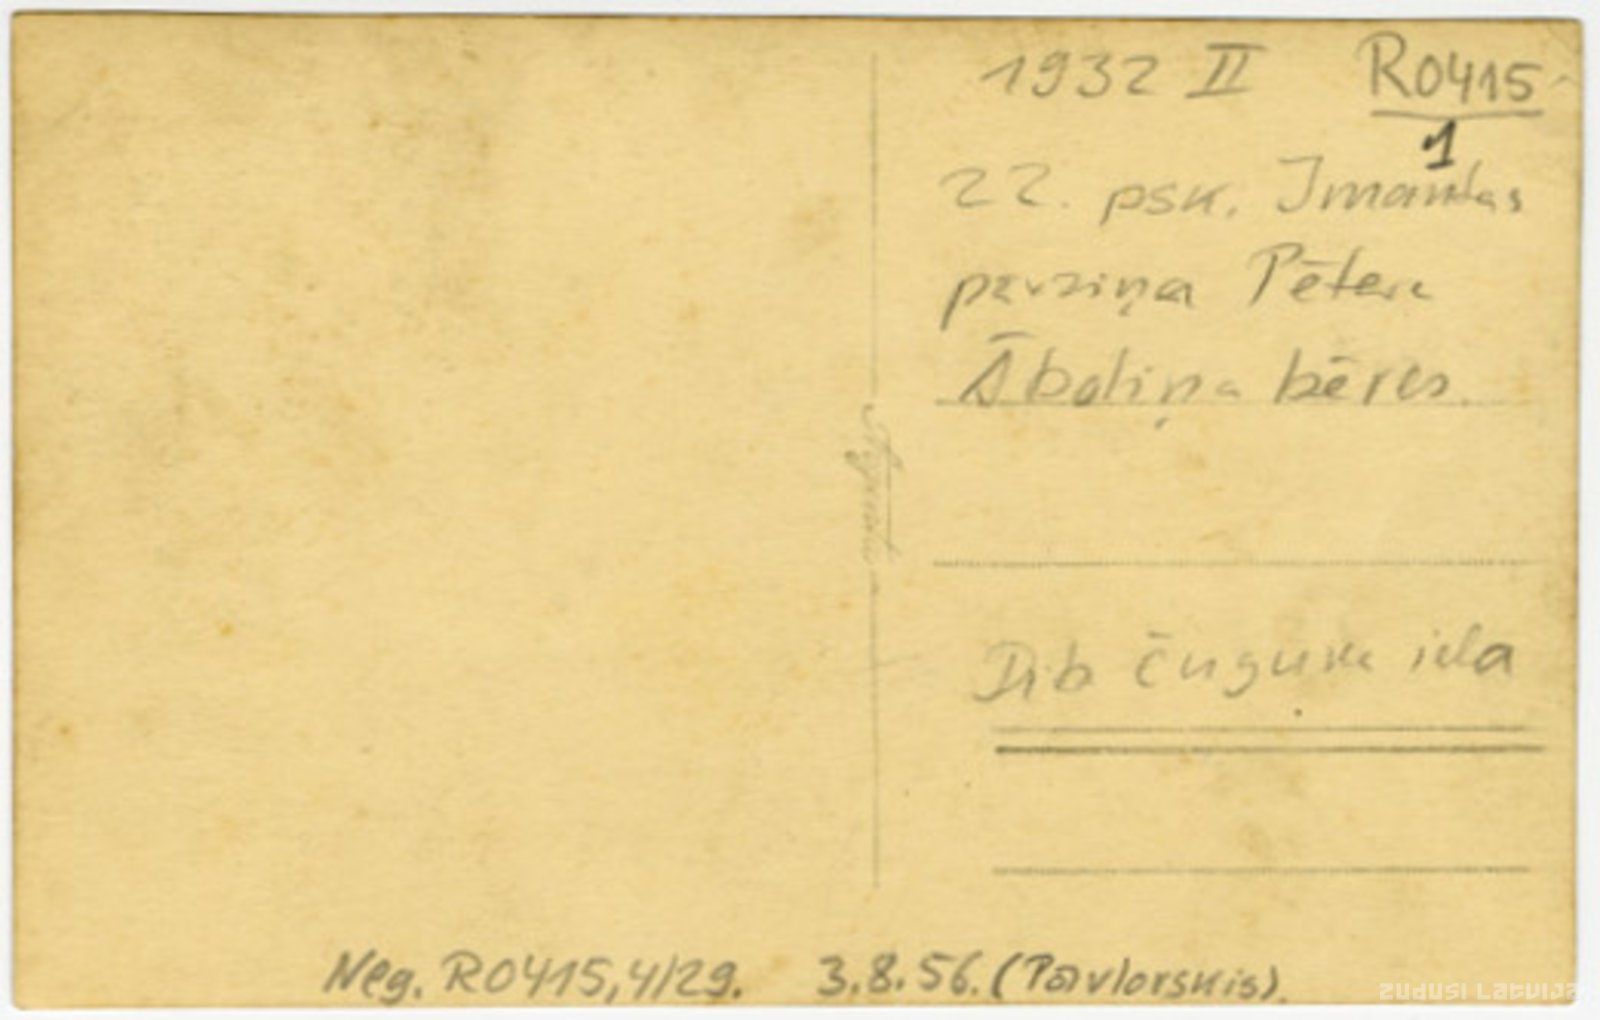 1932 II R0415
1
22. psk. Imantas
pārziņa Pētera
Āboliņa bēres.
Dib čuguna iela
Neg. R0415,4/29. 3.8.56. (Pāvlovskis).
ZUDUSI LATVIJA